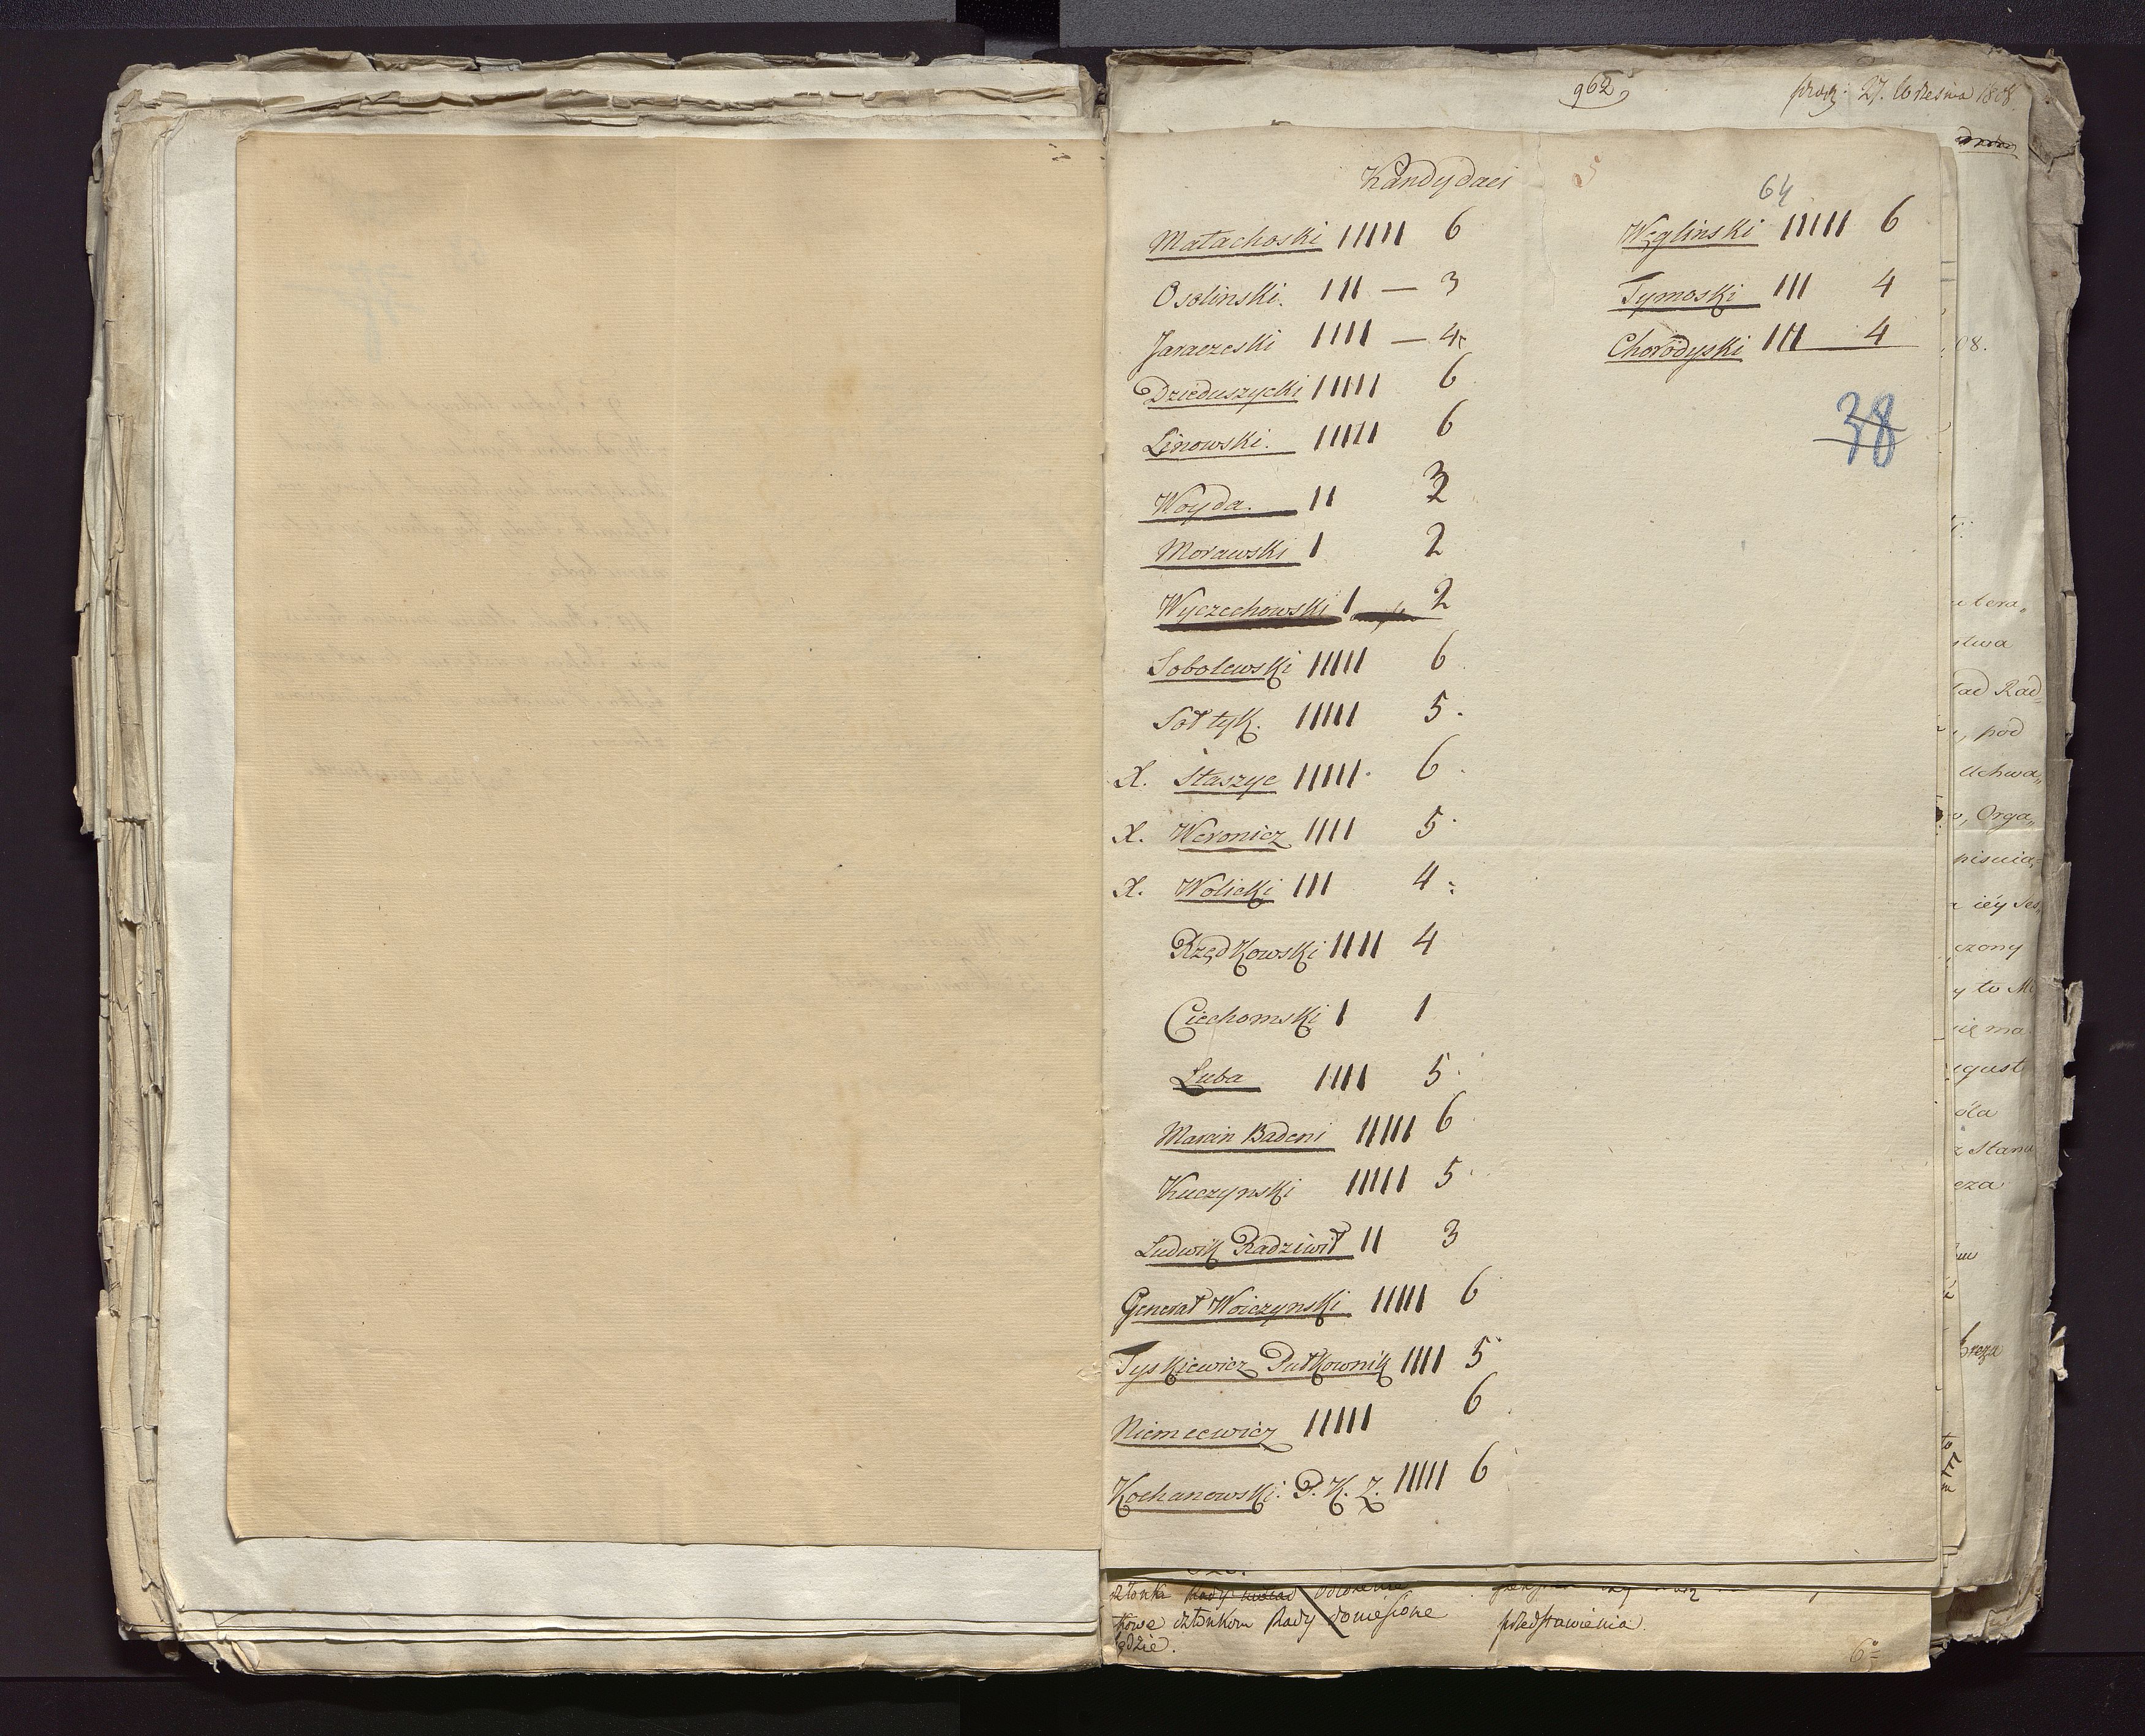 962
27. Września 1808.
Kandydaci
64
Małachoski IIIII 6
Osolinski. III — 3
Jaraczeski IIII — 4
Dzieduszycki IIIII 6
Linowski. IIIII 6
Woyda. II 3
Morawski I 2
Wyczechowski I 2
Sobolewski IIIII 6
Sołtyk. IIIII 5.
X. Staszyc IIIII. 6.
X. Woronicz IIII 5
X. Wolicki III 4
Rzędkowski IIII 4
Ciechomski I 1
Luba IIII 5
Marcin Badeni IIIII 6
Kuczynski IIIII 5
Ludwik Radziwił II 3
Generał Woiczynski IIIII 6
Tyskiewicz Pułkownik IIII 5
Niemcewicz IIIII 6
Kochanowski. P. K. Z. IIIII 6
Węglinski IIIII 6
Tymoski III 4
Chorodyski III 4
38
08.
stwa
pod
Uchwa„
Orga„
iéy Ses„
czony
y to Mi
się ma
Stanu
Breza
członka Rady
kowe członkom Rady doniesione
będzie.
przedstawienia.